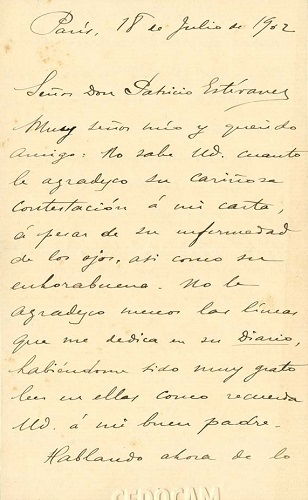 París, 18 de Julio de 1902
Señor Don Patricio Estévanez
Muy señor mío y querido
amigo: No sabe Ud. cuanto
le agradezco su cariñosa
contestación á mi carta,
á pesar de su enfermedad
de los ojos, asi como su
enhorabuena. No le
agradezco menos las líneas
que me dedica en su Diario,
habiéndome sido muy grato
leer en ellas como recuerda
Ud. á mi buen padre.
Hablando ahora de lo
CEDOCAM